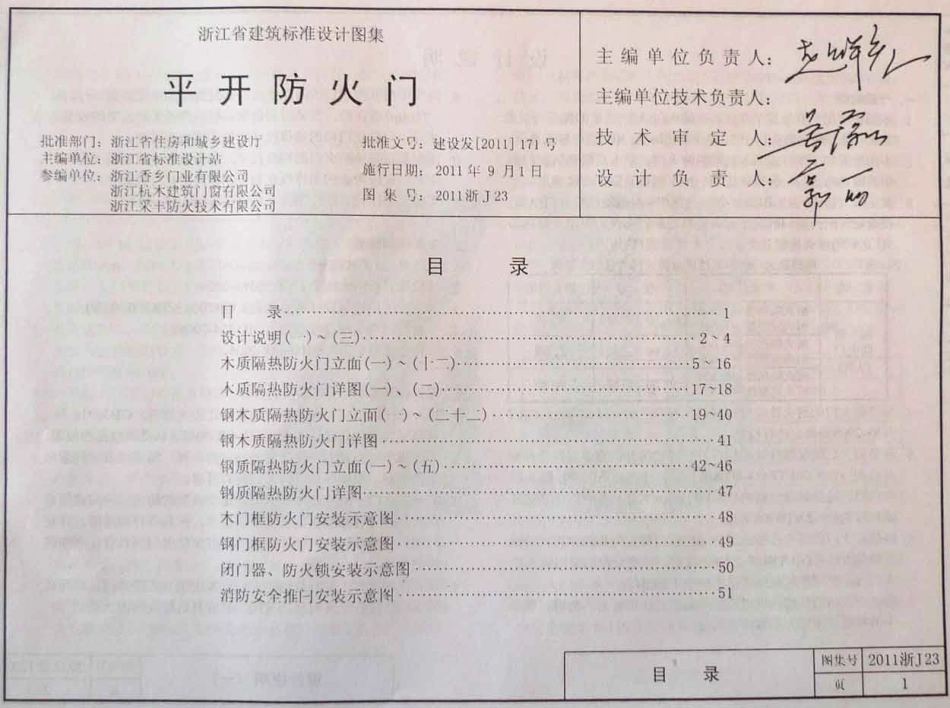 浙江省建筑标准设计图集
平开防火门
批准部门：浙江省住房和城乡建设厅
主编单位：浙江省标准设计站
参编单位：浙江香乡门业有限公司
浙江杭木建筑门窗有限公司
浙江采丰防火技术有限公司
批准文号：建设发[2011]171号
施行日期：2011年9月1日
图集号：2011浙J23
主编单位负责人：
主编单位技术负责人：
技术审定人：
设计负责人：
目 录
目 录 1
设计说明(一)~(三) 2~4
木质隔热防火门立面(一)~(十二) 5~16
木质隔热防火门详图(一)、(二) 17~18
钢木质隔热防火门立面(一)~(二十二) 19~40
钢木质隔热防火门详图 41
钢质隔热防火门立面(一)~(五) 42~46
钢质隔热防火门详图 47
木门框防火门安装示意图 48
钢门框防火门安装示意图 49
闭门器、防火锁安装示意图 50
消防安全推闩安装示意图 51
目 录
图集号 2011浙J23
页 1